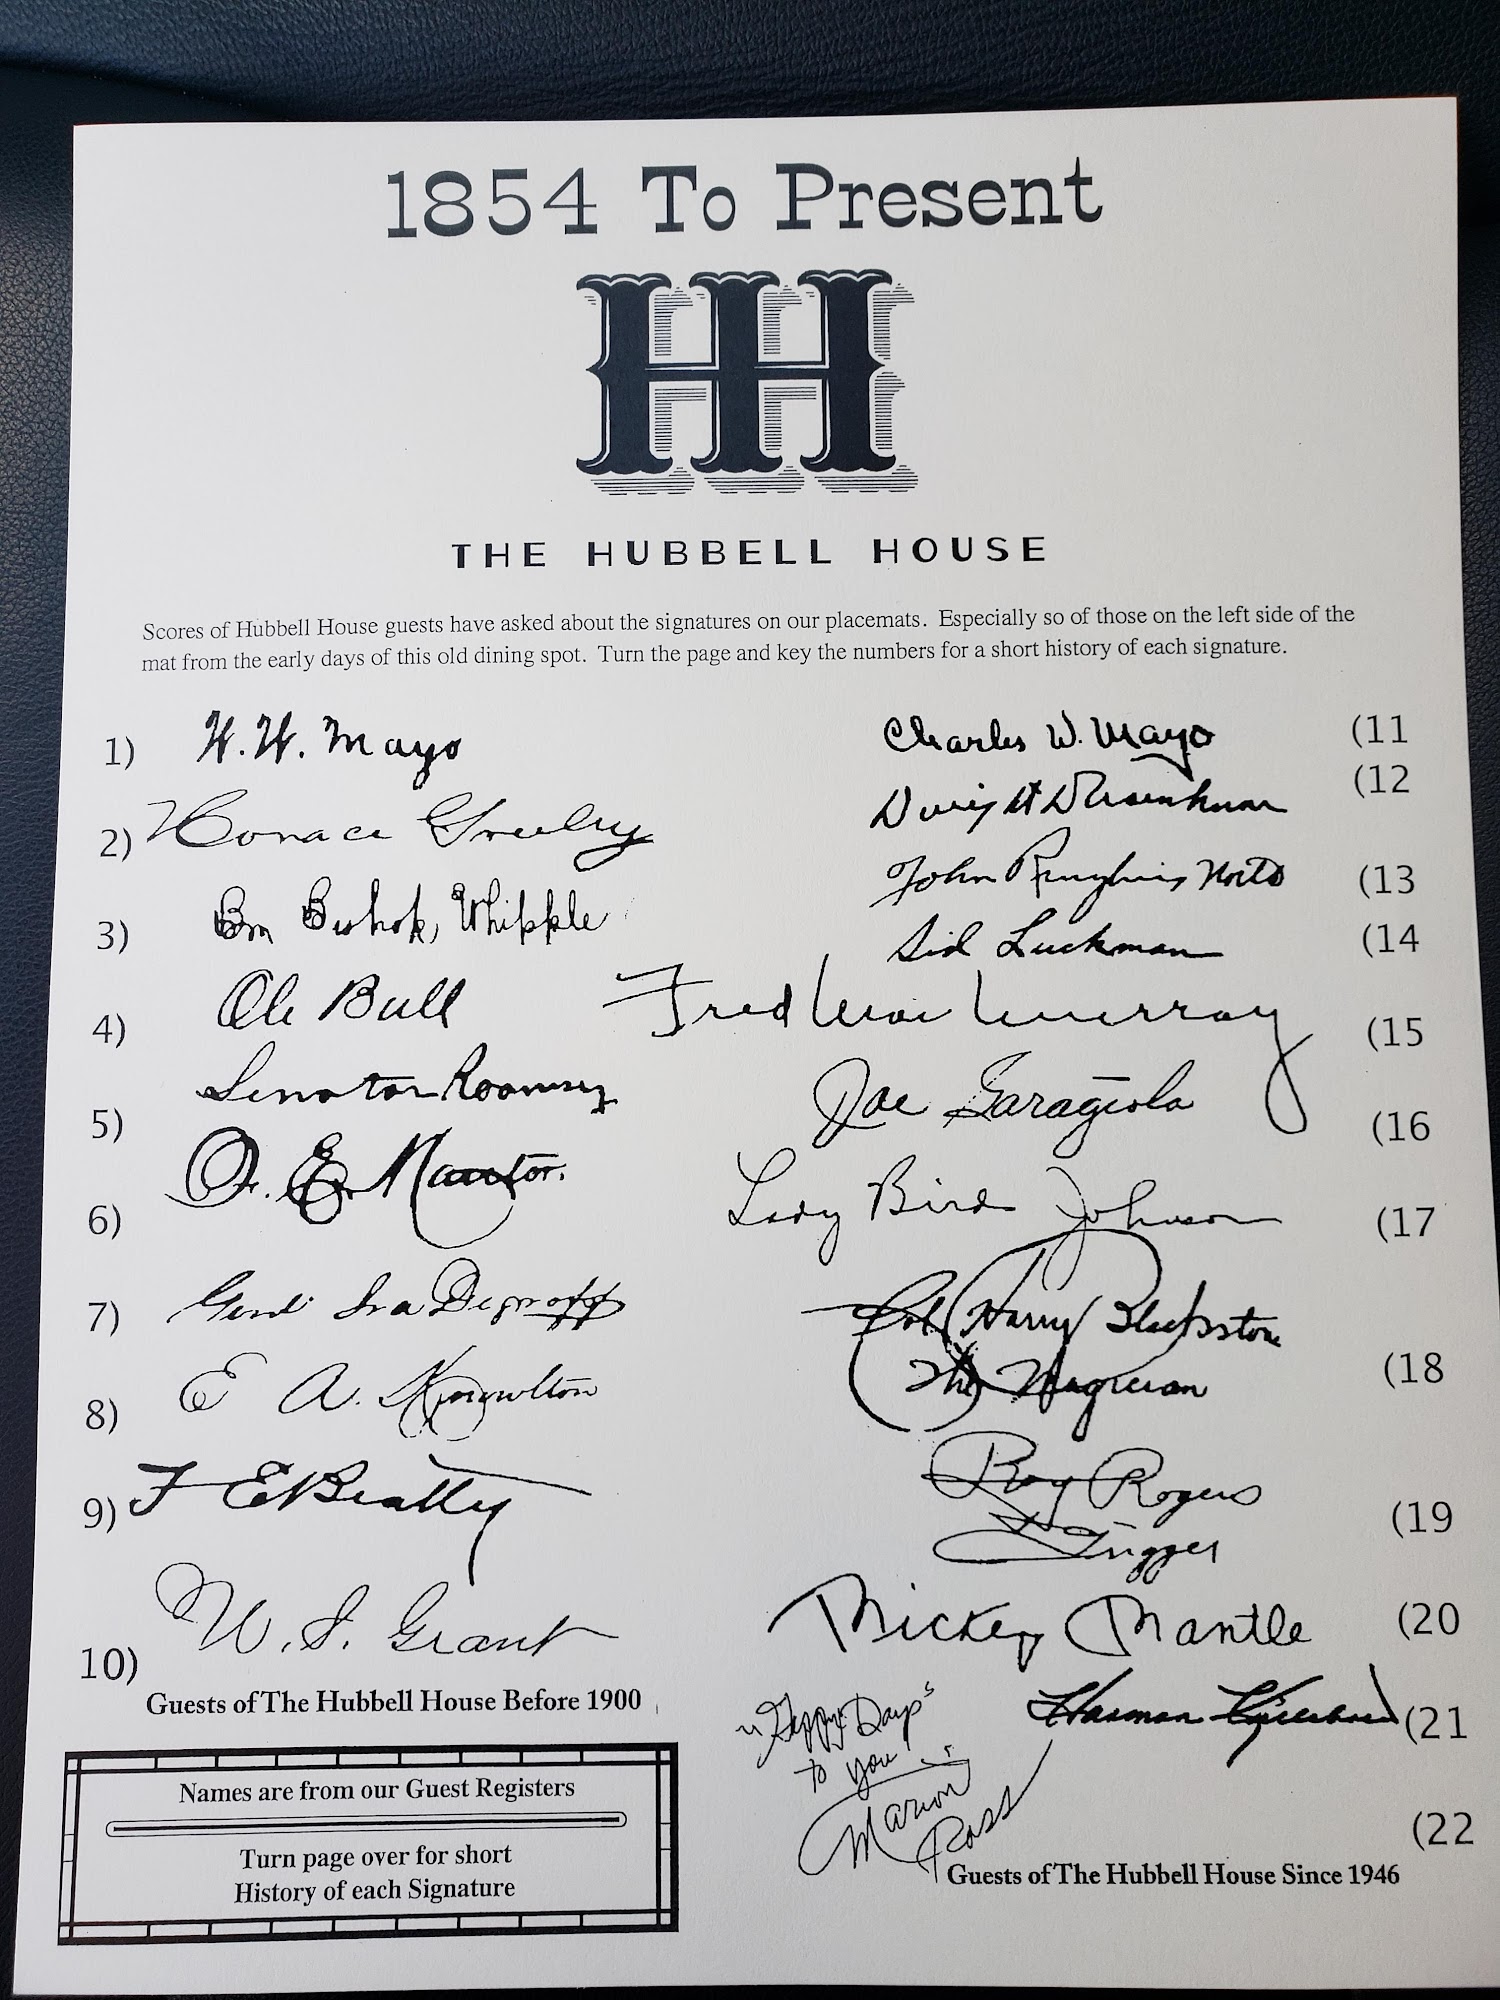 1854 To Present
HH
THE HUBBELL HOUSE
Scores of Hubbell House guests have asked about the signatures on our placemats. Especially so of those on the left side of the
mat from the early days of this old dining spot. Turn the page and key the numbers for a short history of each signature.
1) W. W. Mayo
2) Horace Greeley
3) Bishop, Whipple
4) Ole Bull
5) Senator Ramsey
6) O. E. Nauton.
7) Genl. Ira Degroff
8) E A. Knowlton
9) F E Beatty
10) W. S. Grant
Guests of The Hubbell House Before 1900
Names are from our Guest Registers
Turn page over for short
History of each Signature
Charles W. Mayo (11
Dwight D Eisenhower (12
John (13
Sid Luckman (14
Fred Mac Murray (15
Joe Garagiola (16
Lady Bird Johnson (17
Harry Blackstone
The Magician (18
Roy Rogers
Trigger (19
Mickey Mantle (20
Harmon Killebrew (21
"Happy Days"
to you!
Marion
Ross (22
Guests of The Hubbell House Since 1946